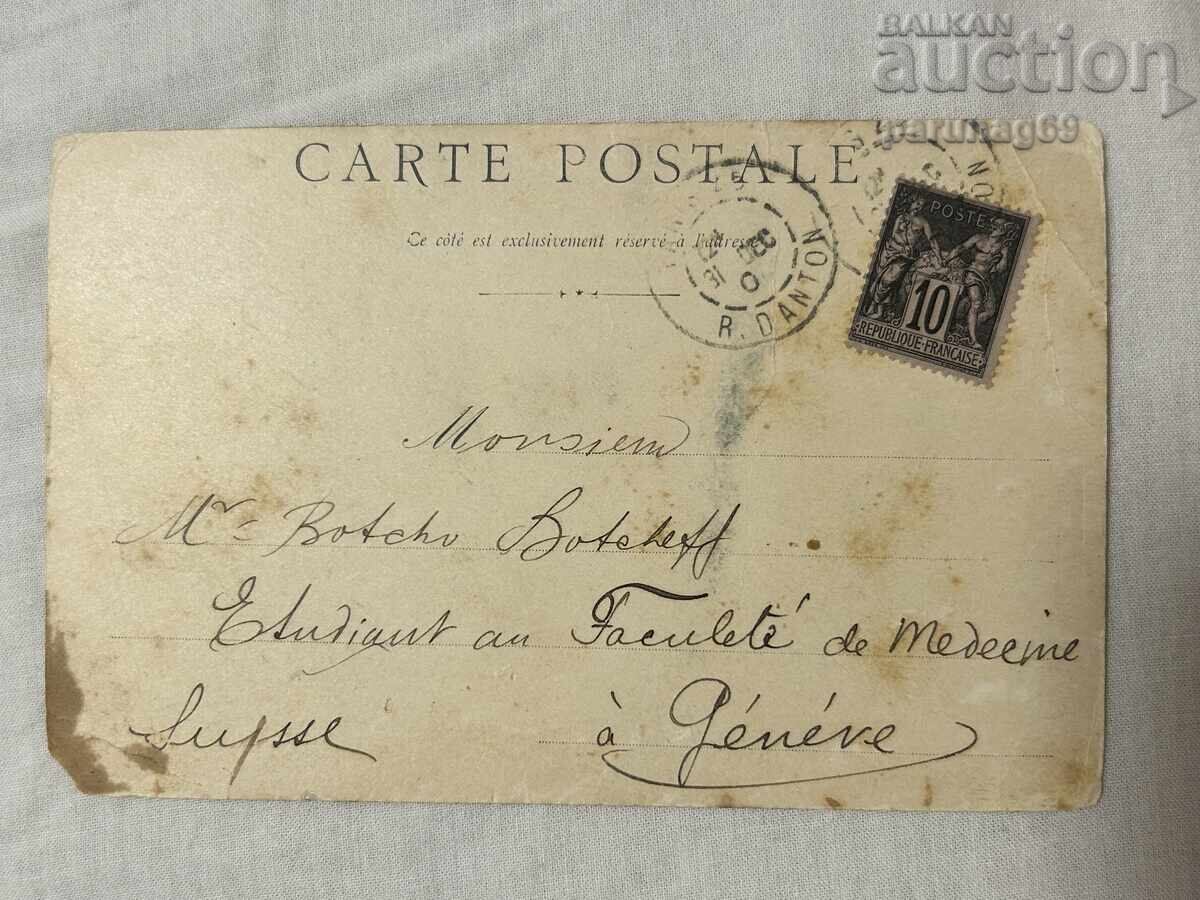 BALKAN
auction
parunag69
CARTE POSTALE
Ce côté est exclusivement réservé à l'adresse
R. DANTON
31 DEC 0
POSTE
10
REPUBLIQUE FRANÇAISE
Monsieur
Mr Botcho Botcheff
Etudiant au Faculeté de Medecine
Suysse à Généve